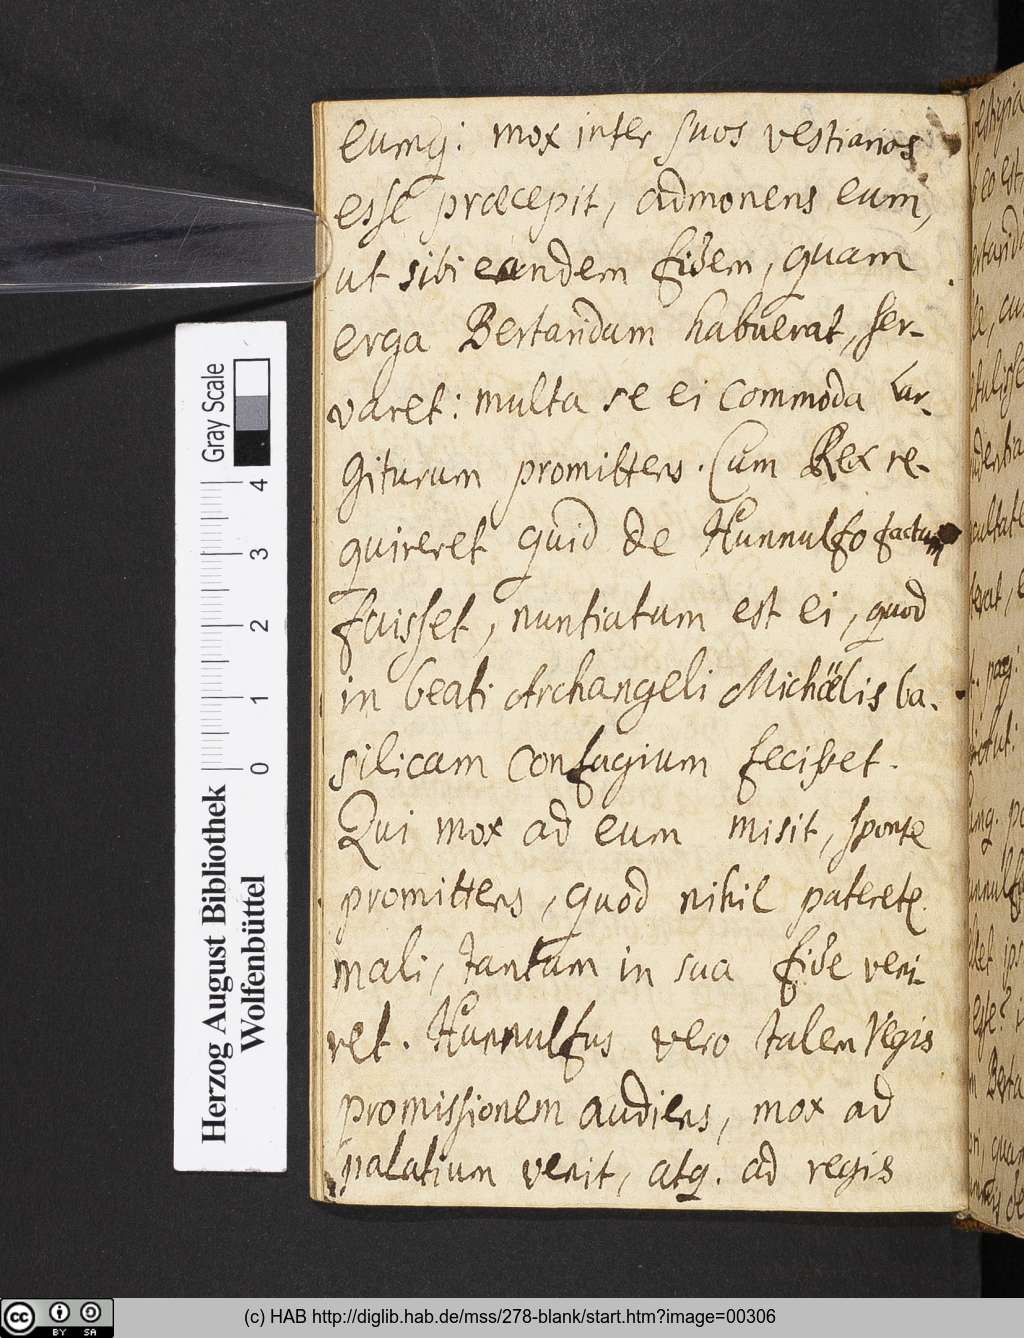 eumq; mox inter suos vestiarios
esse præcepit, admonens eum,
ut sibi eandem fidem, quam
erga Bertaridum habuerat, ser-
varet: multa se ei commoda lar-
giturum promittens. Cum Rex re-
quireret quid de Hunnulfo factum
fuisset, nuntiatum est ei, quod
in beati Archangeli Michaëlis ba-
silicam confugium fecisset.
Qui mox ad eum misit, sponte
promittens, quod nihil pateretr
mali, tantum in sua fide veni-
ret. Hunnulfus vero talem regis
promissionem audiens, mox ad
palatium venit, atq. ad regis
Herzog August Bibliothek
Wolfenbüttel
Gray Scale
0 1 2 3 4
cc BY SA
(c) HAB http://diglib.hab.de/mss/278-blank/start.htm?image=00306